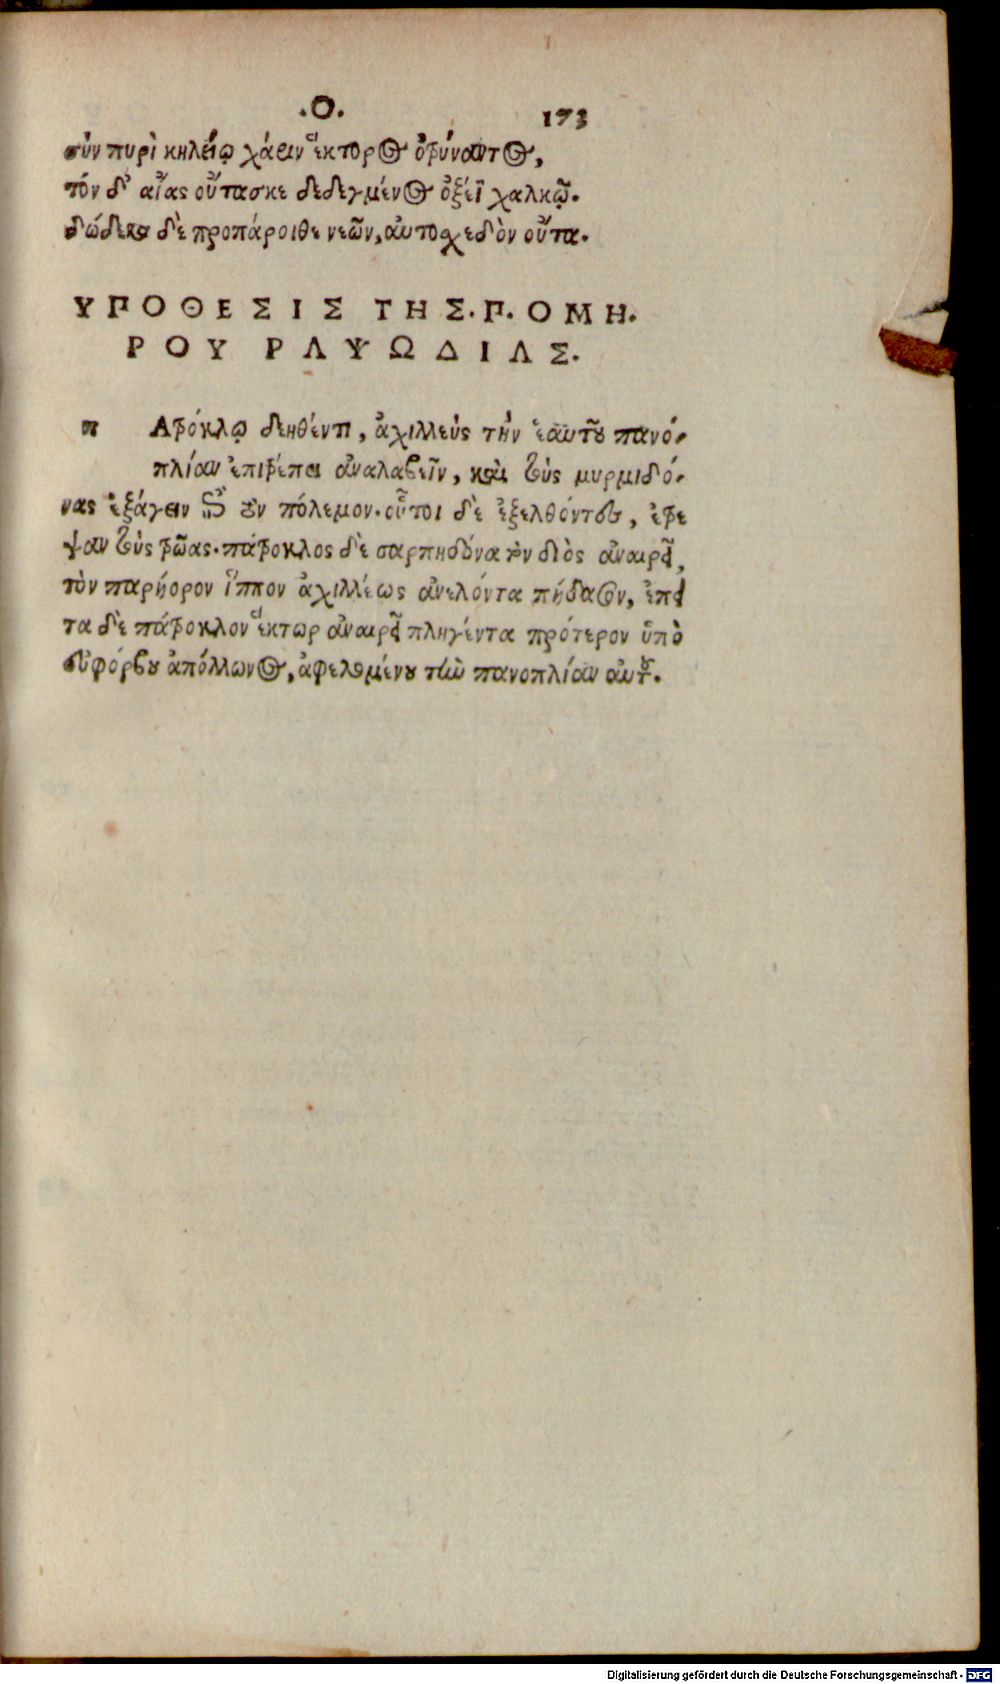 .Ο. 173
σὺν πυρὶ κηλείῳ χάριν ἕκτορος ὀτρύναντος,
τόν δ' αἴας οὔτασκε δεδεγμένος ὀξέϊ χαλκῷ.
δώδεκα δὲ προπάροιθε νεῶν, αὐτοσχεδὸν οὖτα.
ΥΠΟΘΕΣΙΣ ΤΗΣ.Π.ΟΜΗ.
ΡΟΥ ΡΑΨΩΔΙΑΣ.
π Ατρόκλῳ δεηθέντι, ἀχιλλεὺς τὴν ἑαυτοῦ πανο-
πλίαν ἐπιτρέπει ἀναλαβεῖν, καὶ τοὺς μυρμιδό-
νας ἐξάγειν ἐπὶ τὸν πόλεμον. οὗτοι δὲ ἐξελθόντες, ἐτρε
ψαν τοὺς τρῶας. πάτροκλος δὲ σαρπηδόνα τὸν διὸς ἀναιρεῖ,
τὸν παρήορον ἵππον ἀχιλλέως ἀνελόντα πήδασον, ἔπει
τα δὲ πάτροκλον ἕκτωρ ἀναιρεῖ πληγέντα πρότερον ὑπὸ
εὐφόρβου ἀπόλλωνος, ἀφελομένου τὴν πανοπλίαν αὐτοῦ.
Digitalisierung gefördert durch die Deutsche Forschungsgemeinschaft - DFG